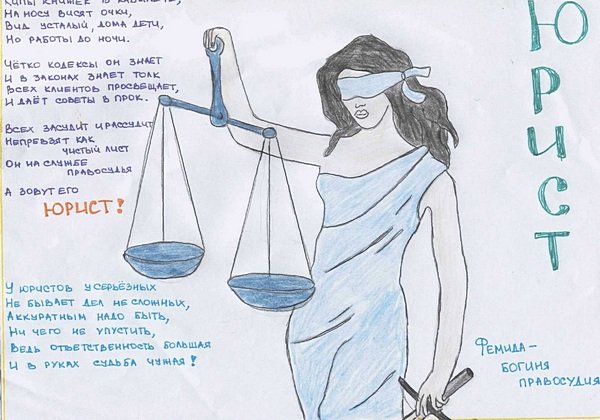 Кипы книжек в кабинете,
На носу висят очки,
Вид усталый, дома дети,
Но работы до ночи.
Чётко кодексы он знает
И в законах знает толк
Всех клиентов просвещает,
И даёт советы в прок.
Всех засудит и рассудит
Непревзят как
чистый лист
Он на службе
правосудья
А зовут его
ЮРИСТ!
У юристов усерьёзных
Не бывает дел не сложных,
Аккуратным надо быть,
Ни чего не упустить,
Ведь ответственность большая
И в руках судьба чужая!
ЮРИСТ
Фемида-
богиня
правосудия